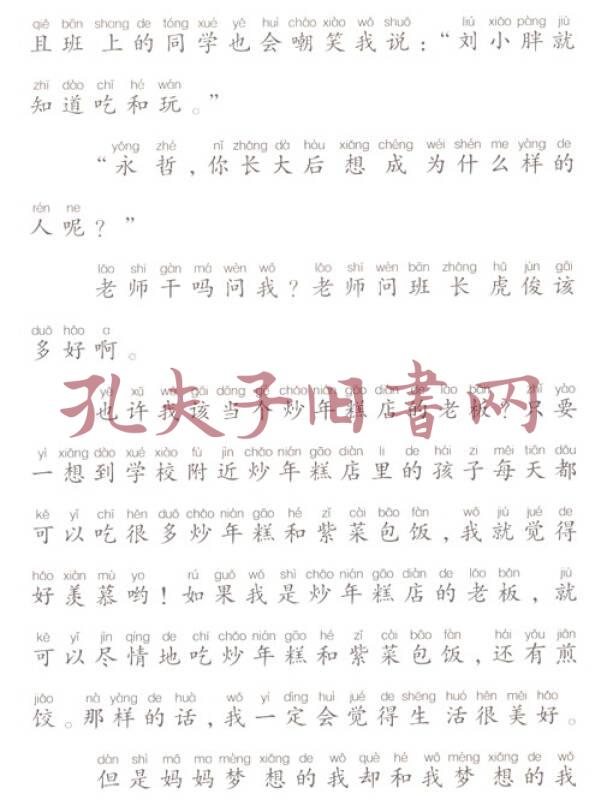 qiě bān shang de tóng xué yě huì cháo xiào wǒ shuō liú xiǎo pàng jiù
且班上的同学也会嘲笑我说：“刘小胖就
zhī dào chī hé wán
知道吃和玩。”
yǒng zhé nǐ zhǎng dà hòu xiǎng chéng wéi shén me yàng de
“永哲，你长大后想成为什么样的
rén ne
人呢？”
lǎo shī gàn má wèn wǒ lǎo shī wèn bān zhǎng hǔ jùn gāi
老师干吗问我？老师问班长虎俊该
duō hǎo a
多好啊。
yě xǔ wǒ gāi dāng gè chǎo nián gāo diàn de lǎo bǎn zhǐ yào
也许我该当个炒年糕店的老板？只要
孔夫子旧书网
yì xiǎng dào xué xiào fù jìn chǎo nián gāo diàn li de hái zi měi tiān dōu
一想到学校附近炒年糕店里的孩子每天都
kě yǐ chī hěn duō chǎo nián gāo hé zǐ cài bāo fàn wǒ jiù jué de
可以吃很多炒年糕和紫菜包饭，我就觉得
hǎo xiàn mù yo rú guǒ wǒ shì chǎo nián gāo diàn de lǎo bǎn jiù
好羡慕哟！如果我是炒年糕店的老板，就
kě yǐ jìn qíng de chī chǎo nián gāo hé zǐ cài bāo fàn hái yǒu jiān
可以尽情地吃炒年糕和紫菜包饭，还有煎
jiǎo nà yàng de huà wǒ yí dìng huì jué de shēng huó hěn měi hǎo
饺。那样的话，我一定会觉得生活很美好。
dàn shì mā ma mèng xiǎng de wǒ què hé wǒ mèng xiǎng de wǒ
但是妈妈梦想的我却和我梦想的我